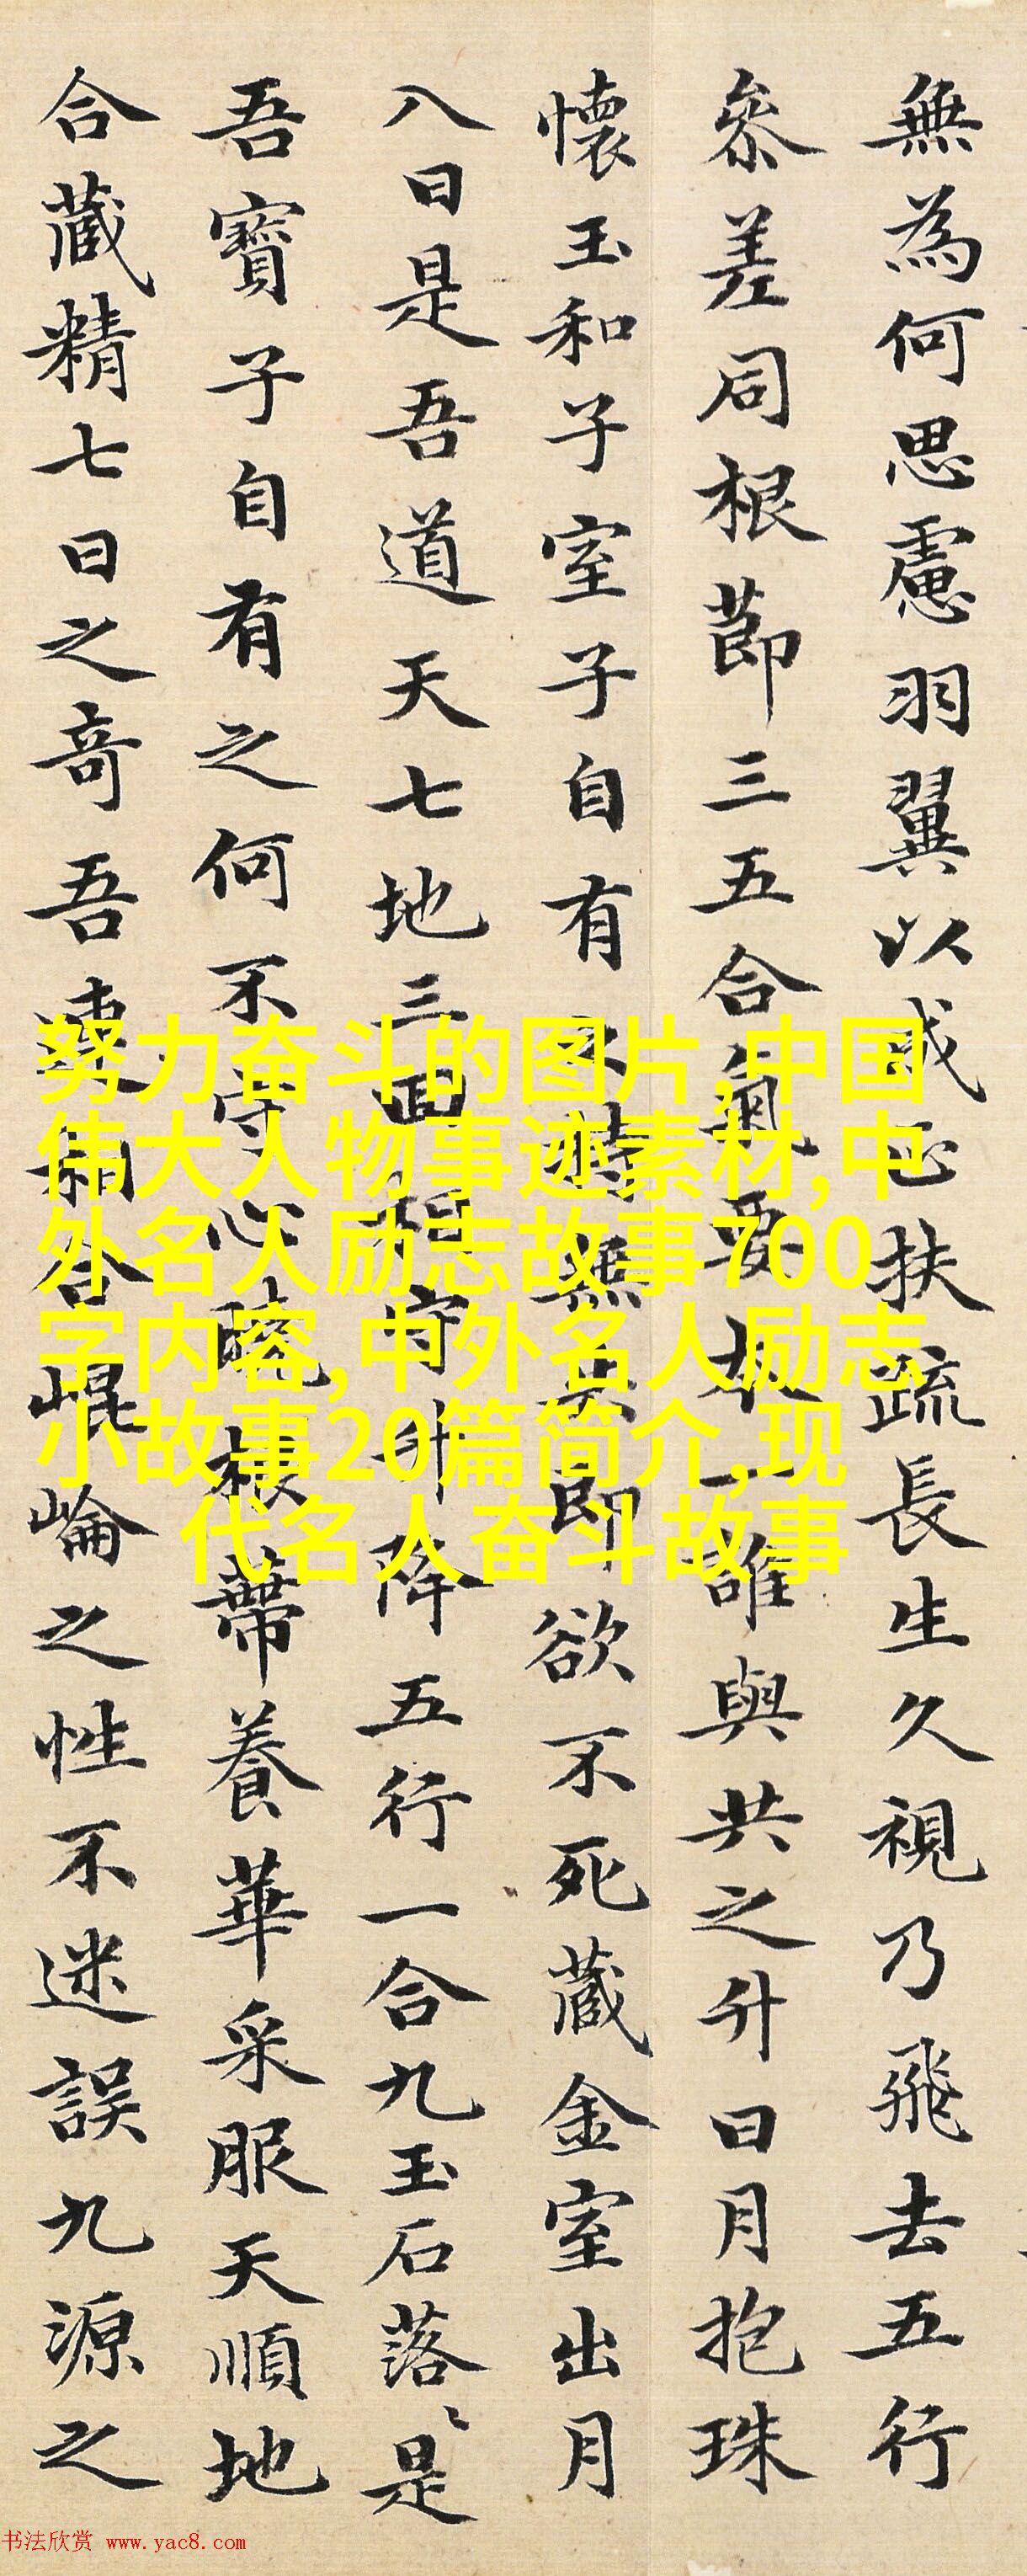 無為何思慮羽翼以成正扶疏長生久視乃飛去五行
参差同根莭三五合氣要本一誰與共之升日月抱珠
懷玉和子室子自有之持無失即欲不死藏金室出月
入日是吾道天七地三回相守升降五行一合九玉石落〻是
吾寶子自有之何不守心曉根蔕養華采服天順地
合藏精七日之奇吾連相合崐崘之性不迷誤九源之
努力奋斗的图片,中国
伟大人物事迹素材,中
外名人励志故事700
字内容,中外名人励志
小故事20篇简介,现
代名人奋斗故事
书法欣赏 www.yac8.com